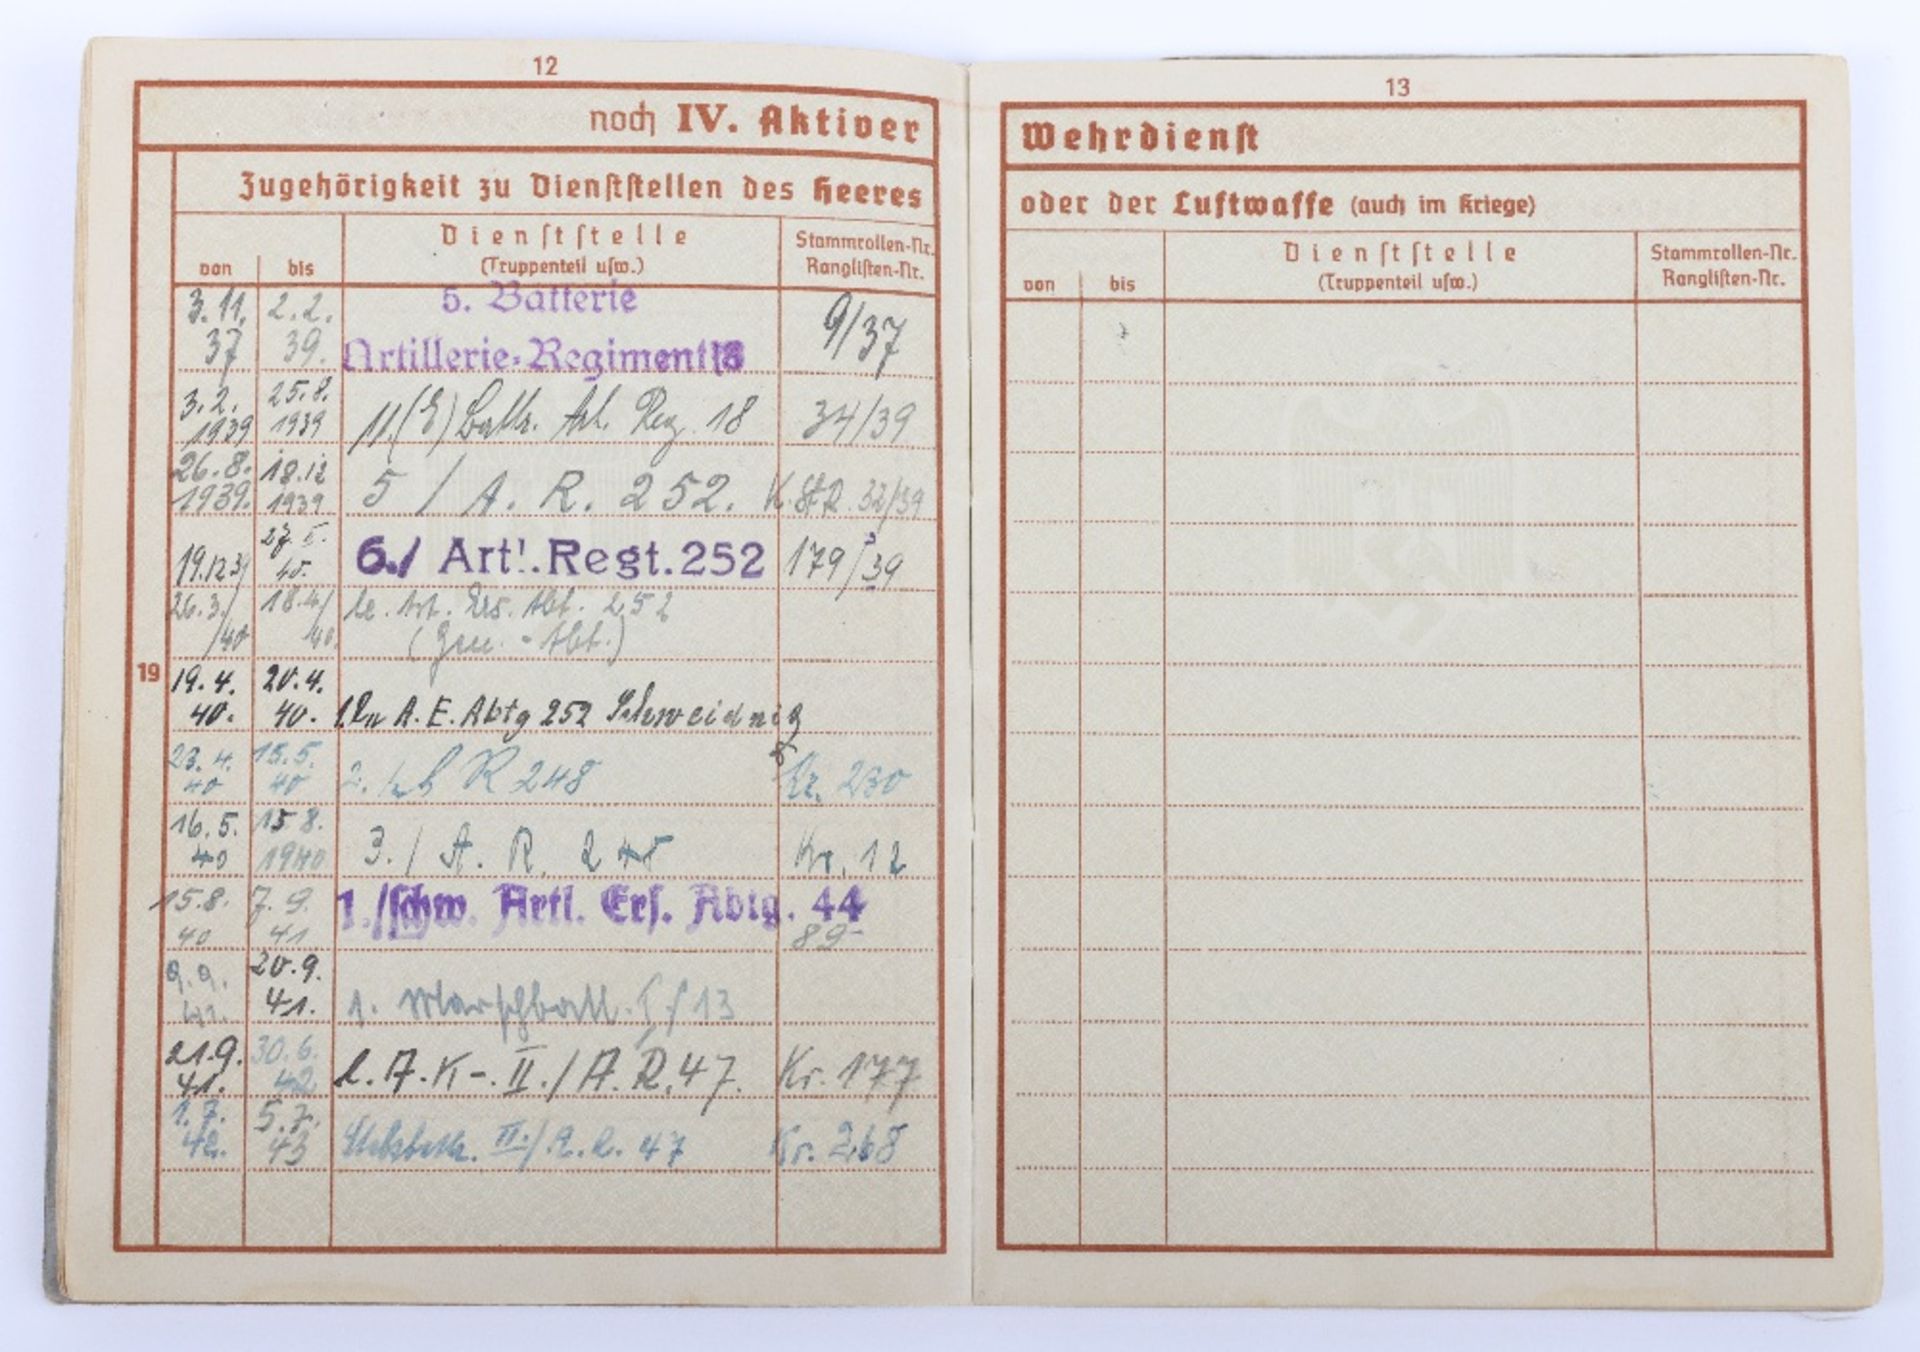 12
noch IV. Aktiver
Zugehörigkeit zu Dienststellen des Heeres
von bis Dienststelle (Truppenteil usw.) Stammrollen-Nr. Ranglisten-Nr.
3.11. 37 2.2. 39. 5. Batterie Artillerie-Regiment 18 9/37
3.2. 1939 25.8. 1939 11.(E) Battr. Art. Reg. 18 34/39
26.8. 1939. 18.12 1939 5 / A. R. 252. K. St R. 32/39
19.12.39 40. 6./ Art. Regt. 252 179/39
26.3./40 18.4/40. le. Art. Ers. Abt. 252 (Gen. - Abt.)
19
19.4. 40. 20.4. 40. A. E. Abtg 252 Schweidnitz
23.4. 40 15.5. 40 2. R 248 Kr. 230
16.5. 40 15 8. 1940 3. / A. R. Kr. 12
15.8. 40 7. 9. 41 1./schw. Artl. Ers. Abtg. 44 89
9.9. 41. 20.9. 41. 1. Marschbatt. 13
21.9. 41. 30.6. 42 l. A. K - II./A. R. 47. Kr. 177
1.7. 42. 5.7. 43 Stabsbattr. II./A. R. 47 Kr. 268
13
Wehrdienst
oder der Luftwaffe (auch im Kriege)
von bis Dienststelle (Truppenteil usw.) Stammrollen-Nr. Ranglisten-Nr.